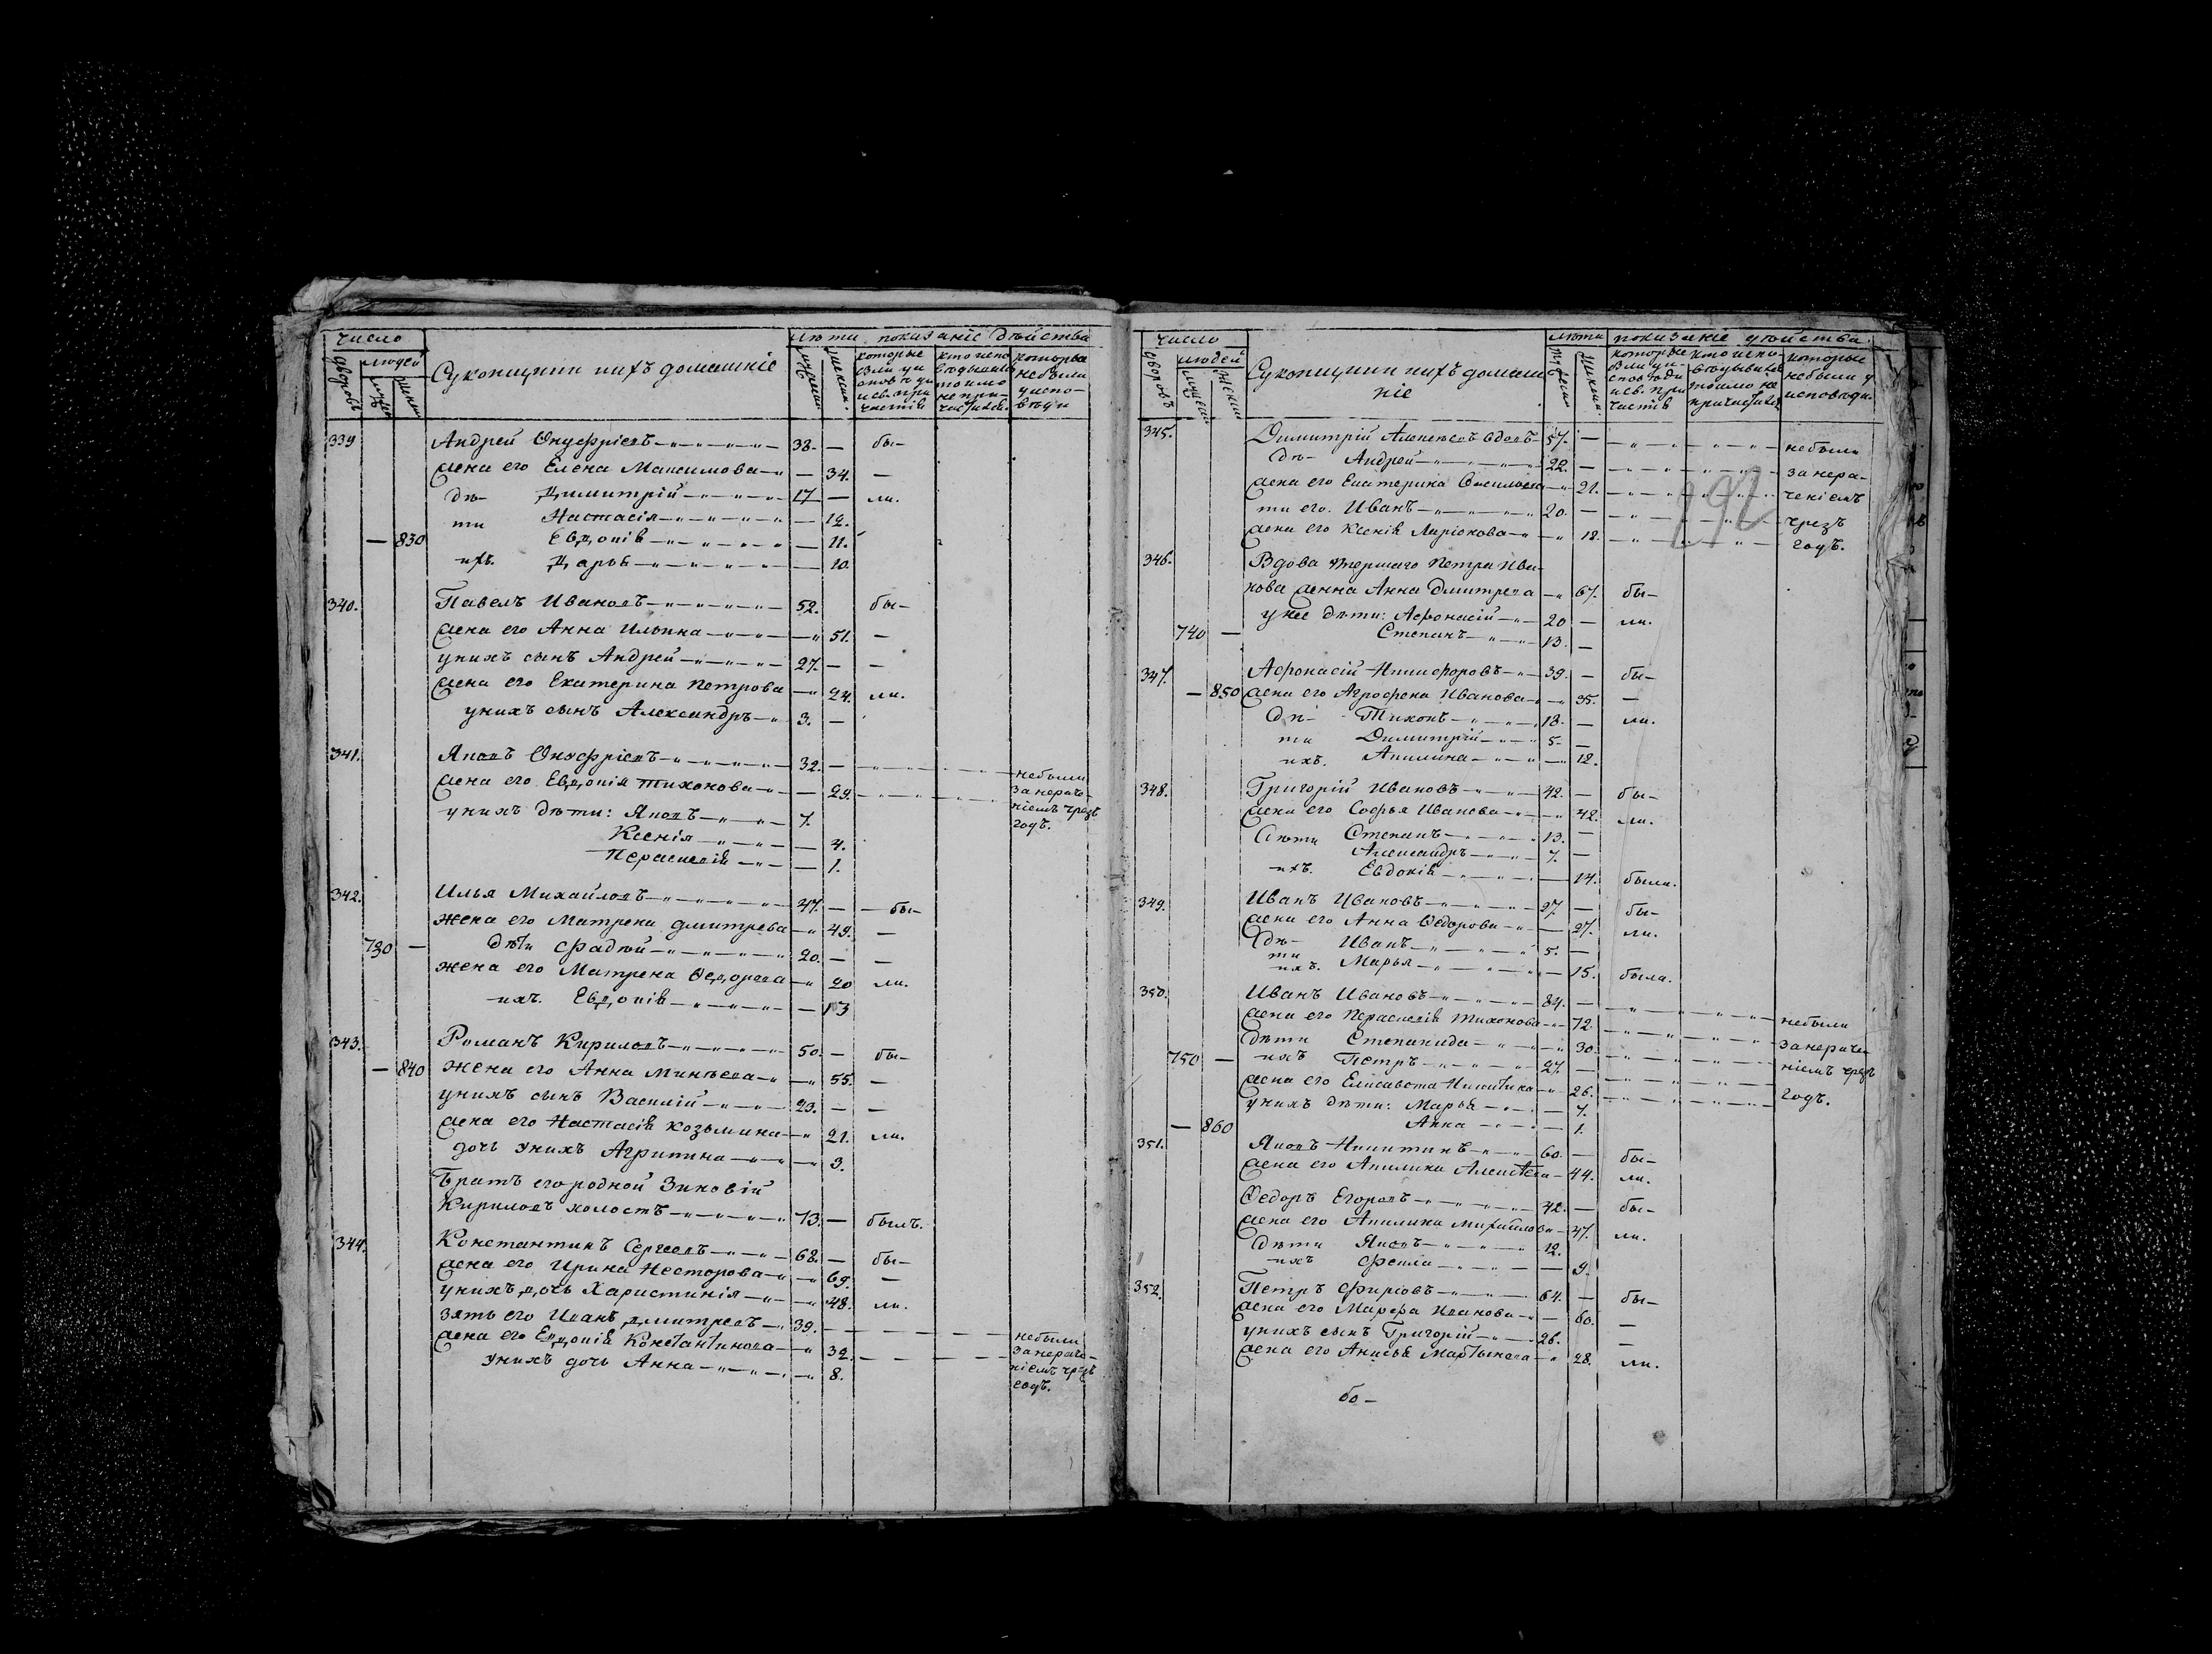 число
лѣта
показаніе дѣйства
людей
дворовъ
Суконщики ихъ домашніе
которые
были
кто испо-
которые
небыли
у испо-
вѣди
339 Андрей Онуфріевъ 38. — бы-
жена его Елена Максимова — 34. —
дѣ- Димитрій 17 — ли.
ти Настасія — 12.
— 830 Евдокія — 11.
ихъ. Дарья — 10
340. Павелъ Ивановъ 52. бы-
жена его Анна Ильина — 51. —
унихъ сынъ Андрей 27. — —
жена его Екатерина Петрова — 24. ли.
унихъ сынъ Александръ 3. —
341. Яковъ Онуфріевъ 32. — небыли
жена его Евдокія Тихонова — 29. занераче-
унихъ дѣти: Яковъ 7. ніемъ чрезъ
годъ.
Ксенія — 4.
Пераскевія — 1.
342. Илья Михайловъ 47. — бы-
жена его Матрена Дмитрева — 49. —
730 — дѣти Фадѣй 20. — —
жена его Матрена Ѳедорова — 20 ли.
ихъ. Евдокія — 13
343. Романъ Кириловъ 50. — бы-
— 840 жена его Анна Минѣева — 55. —
унихъ сынъ Василій 23. — —
жена его Настасія Козьмина — 21. ли.
дочь унихъ Агрипина — 3.
Братъ его родной Зиновій
Кириловъ холостъ 73. — былъ.
344. Константинъ Сергеевъ 68. — бы-
жена его Ирина Несторова — 69. —
унихъ дочь Харистинія — 48. ли.
зять его Иванъ Дмитревъ 39. — небыли
жена его Евдокія Константинова — 32. занераче-
унихъ дочь Анна — 8. ніемъ чрезъ
годъ.
число
лѣта
показаніе дѣйства
людей
дворовъ
Суконщики ихъ домаш
ніе
которые
кто испо-
которые
небыли у
исповѣди.
192
345. Димитрій Алексѣевъ вдовъ 57. — небыли
дѣ- Андрей 22. — занера-
жена его Екатерина Васильева — 21. ченіемъ
ти его. Иванъ 20. — чрезъ
жена его Ксенія Ларіонова — 18. годъ.
346. Вдова умершаго Петра Ива-
нова женна Анна Дмитрева — 67. бы-
у нее дѣти: Афонасій 20 — ли.
740 — Степанъ 13. —
347. Афонасій Никифоровъ 39. — бы-
— 850 жена его Агрофена Иванова — 35. —
дѣ- Тихонъ 13. — ли.
ти Димитрій 5. —
ихъ. Акилина — 12.
348. Григорій Ивановъ 42. — бы-
жена его Софья Иванова — 42. ли.
Дѣти Степанъ 13. —
Александръ 7. —
ихъ. Евдокія — 14. была.
349. Иванъ Ивановъ 27. — бы-
жена его Анна Ѳедорова — 27. ли.
дѣ- Иванъ 5. —
ти
ихъ. Марья — 15. была.
350. Иванъ Ивановъ 84. — небыли
жена его Пераскевія Тихонова — 72. занераче-
дѣти Степанида — 30. ніемъ чрезъ
750 — ихъ Петръ 27. — годъ.
жена его Елисавета Никитина — 26.
унихъ дѣти: Марья — 7.
— 860 Анна — 1.
351. Яковъ Никитинъ 60. — бы-
жена его Акилина Алексѣева — 44. ли.
Ѳедоръ Егоровъ 42. — бы-
жена его Акилина Михайлова — 47. ли.
Дѣти Яковъ 12.
ихъ Фекла — 9.
352. Петръ Фирсовъ 64. — бы-
жена его Марфа Иванова — 60. —
унихъ сынъ Григорій 26. —
жена его Анисья Мартынова — 28. ли.
бо-